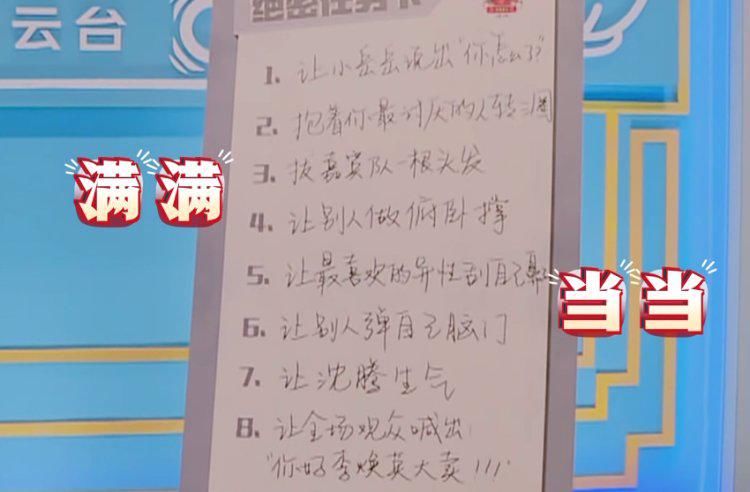 绝密任务卡
云台
1、让小岳岳说出"你怎么了?"
2、抱着你最讨厌的人转三圈
3、拔嘉宾队一根头发
满满
4、让别人做俯卧撑
5、让最喜欢的异性刮自己鼻
当当
6、让别人弹自己脑门
7、让沈腾生气
8、让全场观众喊出
"你好李焕英大卖!!!"